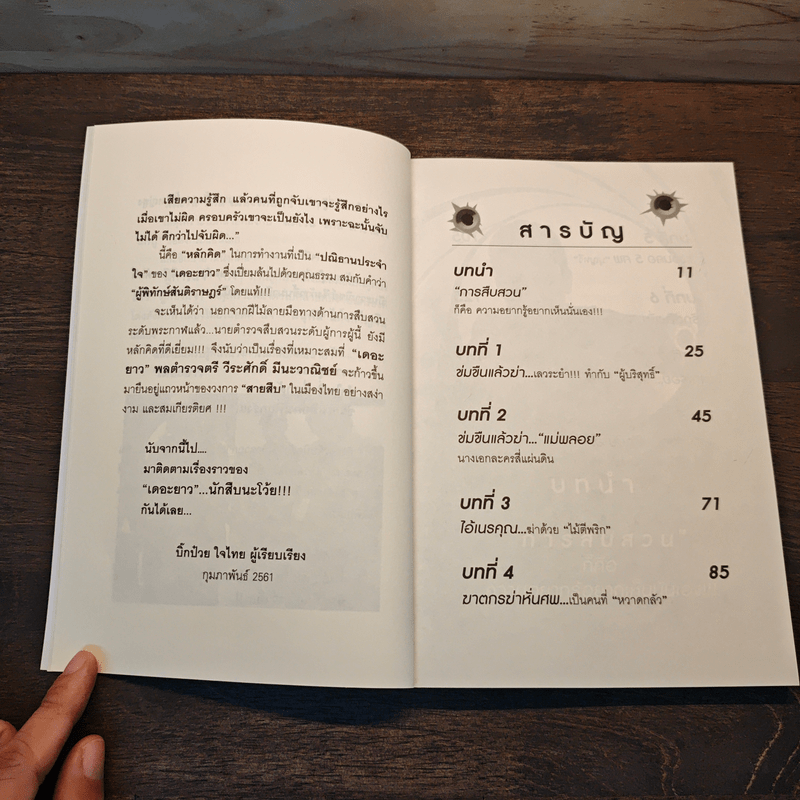 เสียความรู้สึก แล้วคนที่ถูกจับเขาจะรู้สึกอย่างไร
เมื่อเขาไม่ผิด ครอบครัวเขาจะเป็นยังไง เพราะฉะนั้นจับ
ไม่ได้ ดีกว่าไปจับผิด..."
นี้คือ "หลักคิด" ในการทำงานที่เป็น "ปณิธานประจำ
ใจ" ของ "เดอะยาว" ซึ่งเปี่ยมล้นไปด้วยคุณธรรม สมกับคำว่า
"ผู้พิทักษ์สันติราษฎร์" โดยแท้!!!
จะเห็นได้ว่า นอกจากฝีไม้ลายมือทางด้านการสืบสวน
ระดับพระกาฬแล้ว...นายตำรวจสืบสวนระดับผู้การผู้นี้ ยังมี
หลักคิดที่ดีเยี่ยม!!! จึงนับว่าเป็นเรื่องที่เหมาะสมที่ "เดอะ
ยาว" พลตำรวจตรี วีระศักดิ์ มีนะวาณิชย์ จะก้าวขึ้น
มายืนอยู่แถวหน้าของวงการ "สายสืบ" ในเมืองไทย อย่างสง่า
งาม และสมเกียรติยศ !!!
นับจากนี้ไป....
มาติดตามเรื่องราวของ
"เดอะยาว"...นักสืบนะโว้ย!!!
กันได้เลย...
บิ๊กป๋วย ใจไทย ผู้เรียบเรียง
กุมภาพันธ์ 2561
สารบัญ
บทนำ 11
"การสืบสวน"
ก็คือ ความอยากรู้อยากเห็นนั่นเอง!!!
บทที่ 1 25
ข่มขืนแล้วฆ่า...เลวระยำ!!! ทำกับ "ผู้บริสุทธิ์"
บทที่ 2 45
ข่มขืนแล้วฆ่า..."แม่พลอย"
นางเอกละครสี่แผ่นดิน
บทที่ 3 71
ไอ้เนรคุณ...ฆ่าด้วย "ไม้ตีพริก"
บทที่ 4 85
ฆาตกรฆ่าหั่นศพ...เป็นคนที่ "หวาดกลัว"